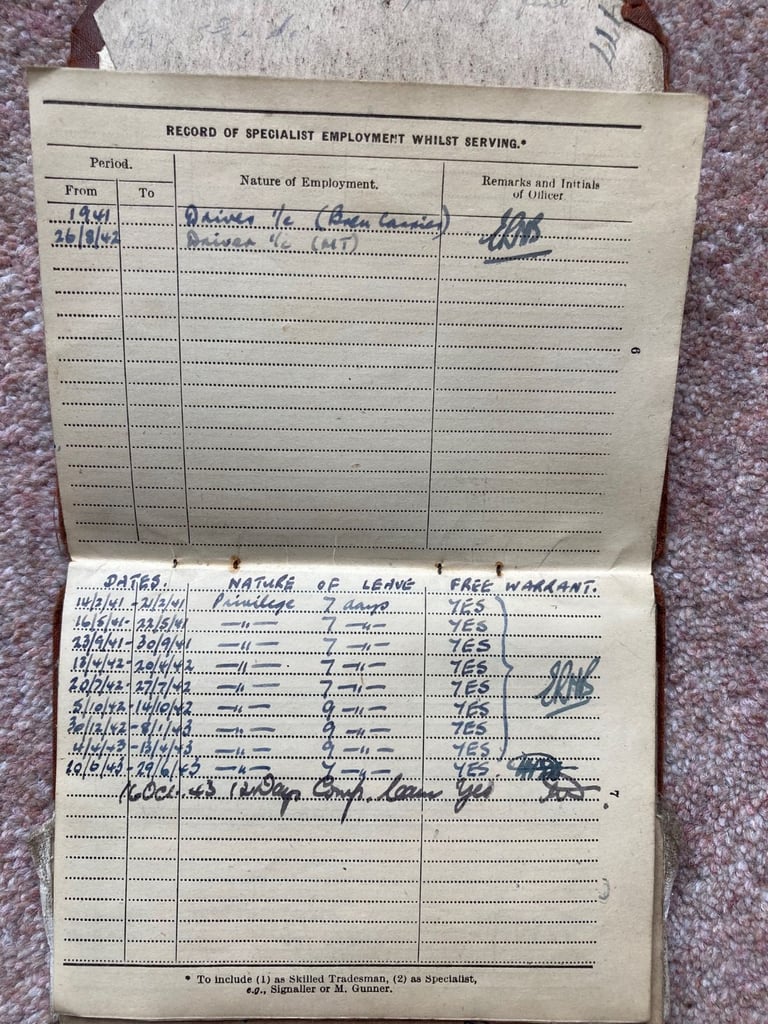 RECORD OF SPECIALIST EMPLOYMENT WHILST SERVING.*
Period. Nature of Employment. Remarks and Initials of Officer
From To
1941 Driver i/c (Bren Carrier) ERHB
26/8/42 Driver i/c (MT)
6
DATES. NATURE OF LEAVE FREE WARRANT.
14/2/41 - 21/2/41 Privilege 7 days YES
16/5/41 - 22/5/41 —"— 7 —"— YES
23/9/41 - 30/9/41 —"— 7 —"— YES
13/4/42 - 20/4/42 —"— 7 —"— YES
20/7/42 - 27/7/42 —"— 7 —"— YES ERHB
5/10/42 - 14/10/42 —"— 9 —"— YES
30/12/42 - 8/1/43 —"— 9 —"— YES
4/4/43 - 13/4/43 —"— 9 —"— YES
20/6/43 - 29/6/43 —"— —"— YES
16 Oct. 43 12 Days Comp. leave Yes
7
* To include (1) as Skilled Tradesman, (2) as Specialist,
e.g., Signaller or M. Gunner.